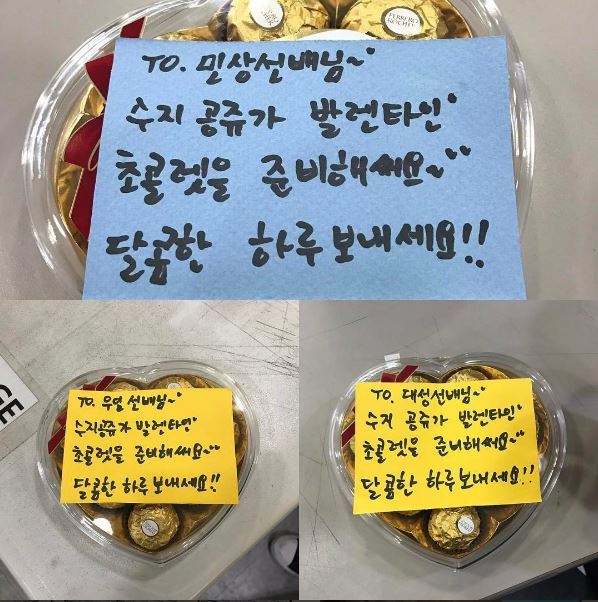 FERRERO
ROCHER
TO. 민상선배님~
수지 공쥬가 발렌타인
초콜렛을 준비해써요~
달콤한 하루 보내세요!!
GE
TO. 우일 선배님~
수지공쥬가 발렌타인
초콜렛을 준비해써요~
달콤한 하루보내세요!!
TO. 대성선배님~
수지 공쥬가 발렌타인
초콜렛을 준비해써요~
달콤한 하루보내세요!!